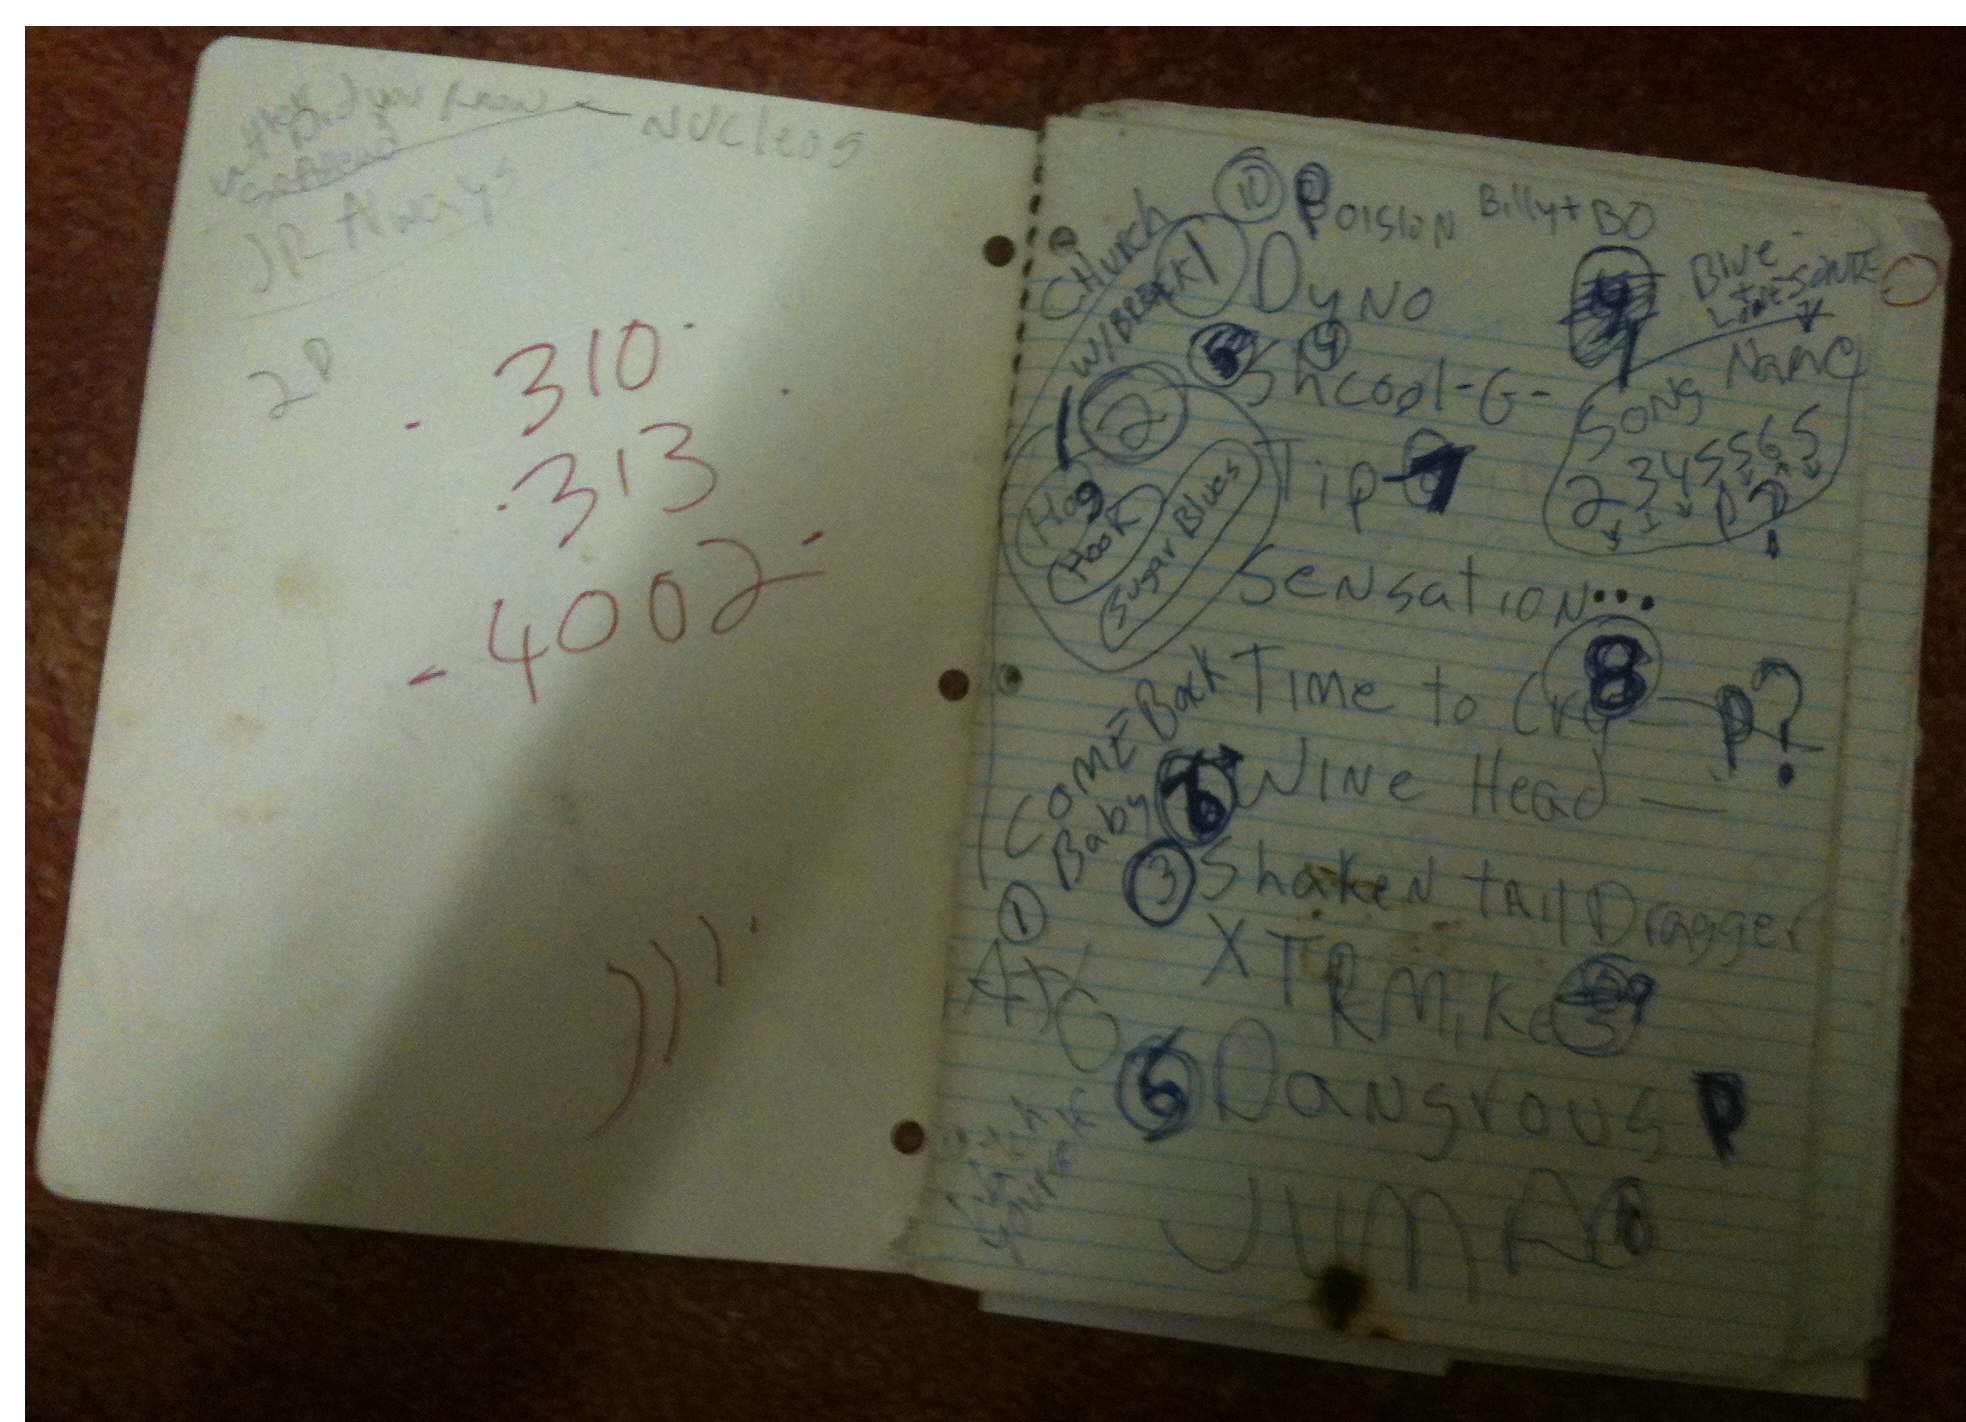 Did you know
NUCleos
JR Always
2D
310
313
4002
10 Poision Billy + BO
CHURCh
W/BREAK
1 Dyno
9
Blue
Name
Song
2 3 4 5 5 6 5
5 Shcool-G- 4
2
Tip 7
Hog
Hook
Sugar Blues
Sensation...
Time to Cry 8 P?
COME Back
Baby
Wine Head
3 Shaken tail Dragger
1
XTRMike 9
Dangrous P
Watch
Yourself
JUMP